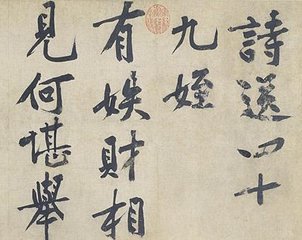 詩送四十
九姪
有娱財相
見何堪舉